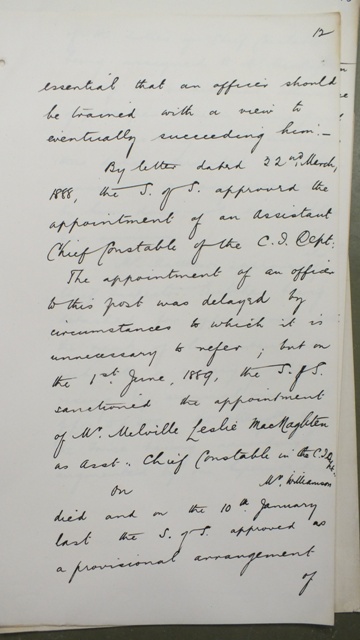 12
essential that an officer should
be trained with a view to
eventually succeeding him:—
By letter dated 22nd March,
1888, the S. of S. approved the
appointment of an Assistant
Chief Constable of the C. I. Dept:
The appointment of an officer
to this post was delayed by
circumstances to which it is
unnecessary to refer; but on
the 1st June, 1889, the S. of S.
sanctioned the appointment
of Mr. Melville Leslie MacNaghten
as Asst: Chief Constable in the C.I.
On Mr. Williamson
died and on the 10th January
last the S. of S. approved as
a provisional arrangement
of